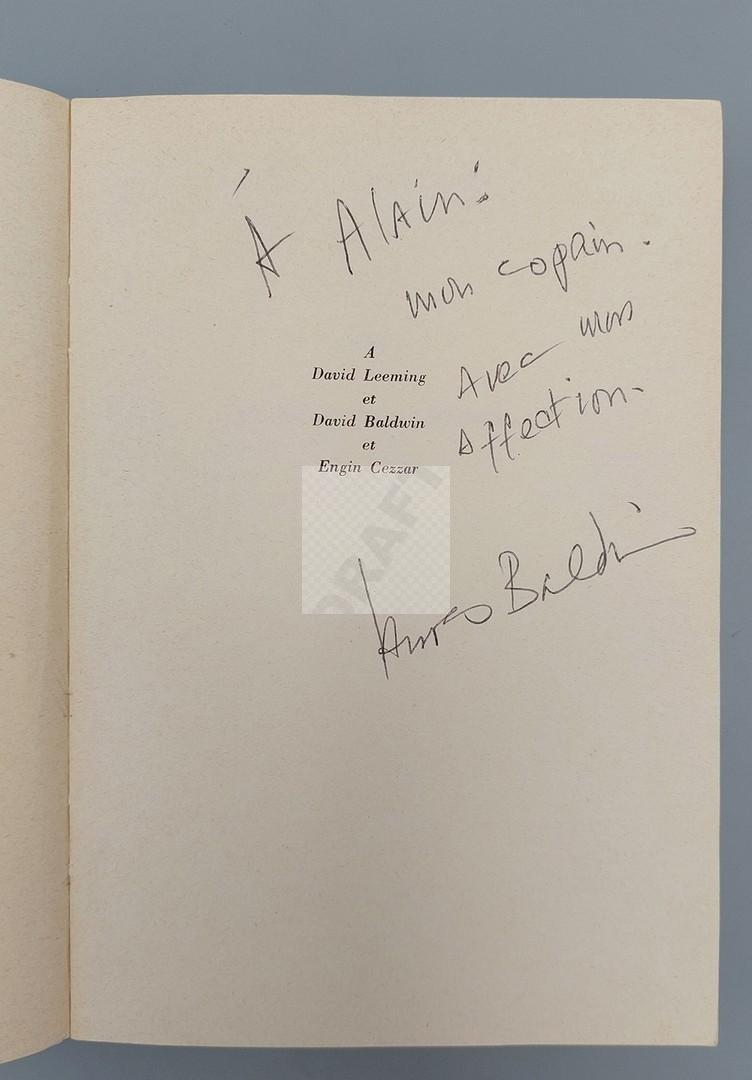 À Alain:
mon copain.
Avec mon
affection-
A
David Leeming
et
David Baldwin
et
Engin Cezzar
DRAFT
James Baldwin